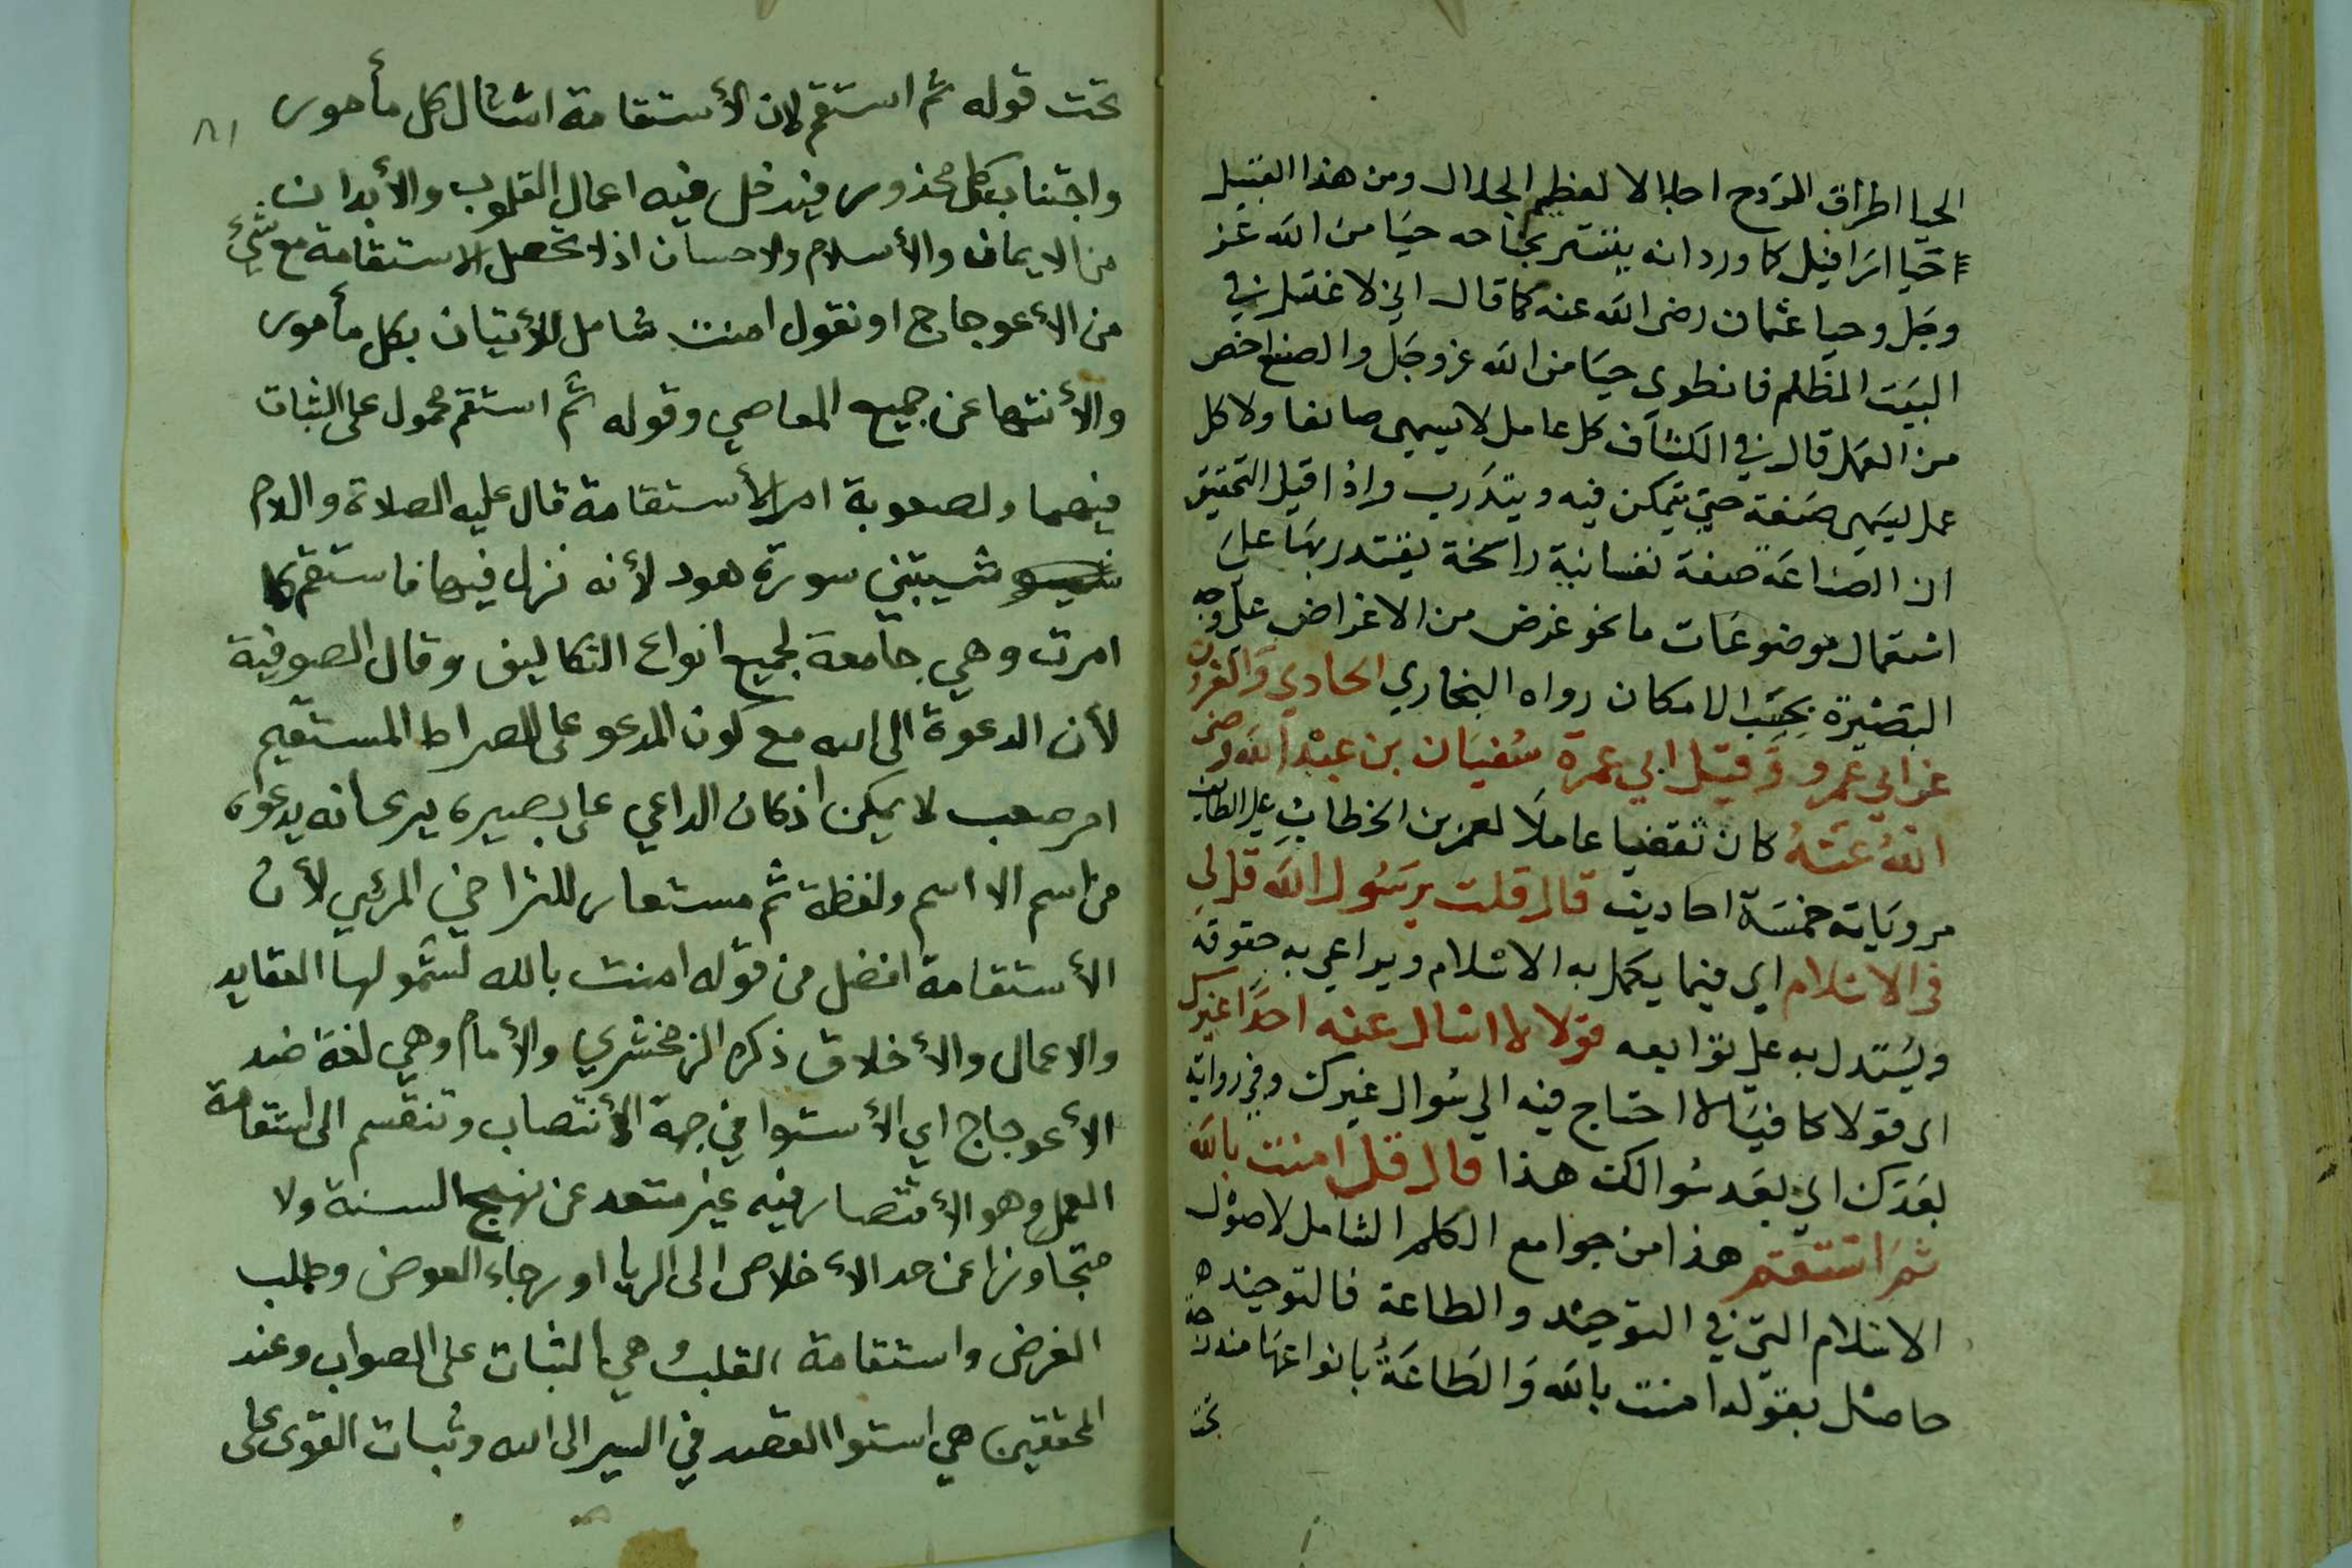 الحيا اطراق الروح اجلالا لعظيم الجلال ومن هذا القبيل
حيا اسرافيل كما ورد انه يتستر بجناحه حيا من الله عز
وجل وحيا عثمان رضي الله عنه كما قال اني لاغتسل في
البيت المظلم فانطوي حيا من الله عز وجل والصنع اخص
من العمل قال في الكشاف كل عامل لا يسمى صانعا ولا كل
عمل يسمى صنعة حتى يتمكن فيه ويتدرب واذا قيل التحقيق
ان الصناعة صفة نفسانية راسخة يقتدر بها على
استعمال موضوعات ما نحو غرض من الاغراض على وجه
البصيرة بحسب الامكان رواه البخاري الحادي والعشرون
عن ابي عمرو وقيل ابي عمرة سفيان بن عبد الله رضى
الله عنه كان ثقفيا عاملا لعمر بن الخطاب على الطائف
مروياته خمسة احاديث قال قلت يرسول الله قل لي
في الاسلام اي فيما يكمل به الاسلام ويراعي به حقوقه
ويستدل به على توابعه قولا لا اسال عنه احدا غيرك
اى قولا كافيا لا احتاج فيه الى سوال غيرك وفي رواية
بعدك اي بعد سوالك هذا قال قل امنت بالله
ثم استقم هذا من جوامع الكلم الشامل لاصول
الاسلام التي في التوحيد والطاعة فالتوحيد
حاصل بقوله امنت بالله والطاعة بانواعها مندرجة
تحت
٨١
تحت قوله ثم استقم لان الأستقامة امتثال كل مأمور
واجتناب كل محذور فيدخل فيه اعمال القلوب والأبدان
من الايمان والأسلام والاحسان اذ لا تحصل الاستقامة مع شئ
من الأعوجاج او نقول امنت شامل للأتيان بكل مأمور
والأنتها عن جميع المعاصي وقوله ثم استقم محمول على الثبات
فيهما ولصعوبة امر الأستقامة قال عليه الصلاة والسلام
شيبتني سورة هود لأنه نزل فيها فاستقم كما
امرت وهي جامعة لجميع انواع التكاليف وقال الصوفية
لأن الدعوة الى الله مع كون المدعو على الصراط المستقيم
امر صعب لا يمكن اذ كان الداعي على بصيره يرى انه يدعوه
من اسم الا اسم ولفظة ثم مستعار للتراخي المرئي لأن
الأستقامة افضل من قوله امنت بالله لشمولها العقايد
والاعمال والأخلاق ذكره الزمخشري والأمام وهي لغة ضد
الأعوجاج اي الأستوا في جهة الأنتصاب وتنقسم الى استقامة
العمل وهو الأقتصار فيه غير متعد عن نهج السنة ولا
متجاوزا عن حد الأخلاص الى الريا او رجاء العوض وطلب
الغرض واستقامة القلب وهي الثبات على الصواب وعند
المحققين هي استوا القصد في السير الى الله وثبات القوى على